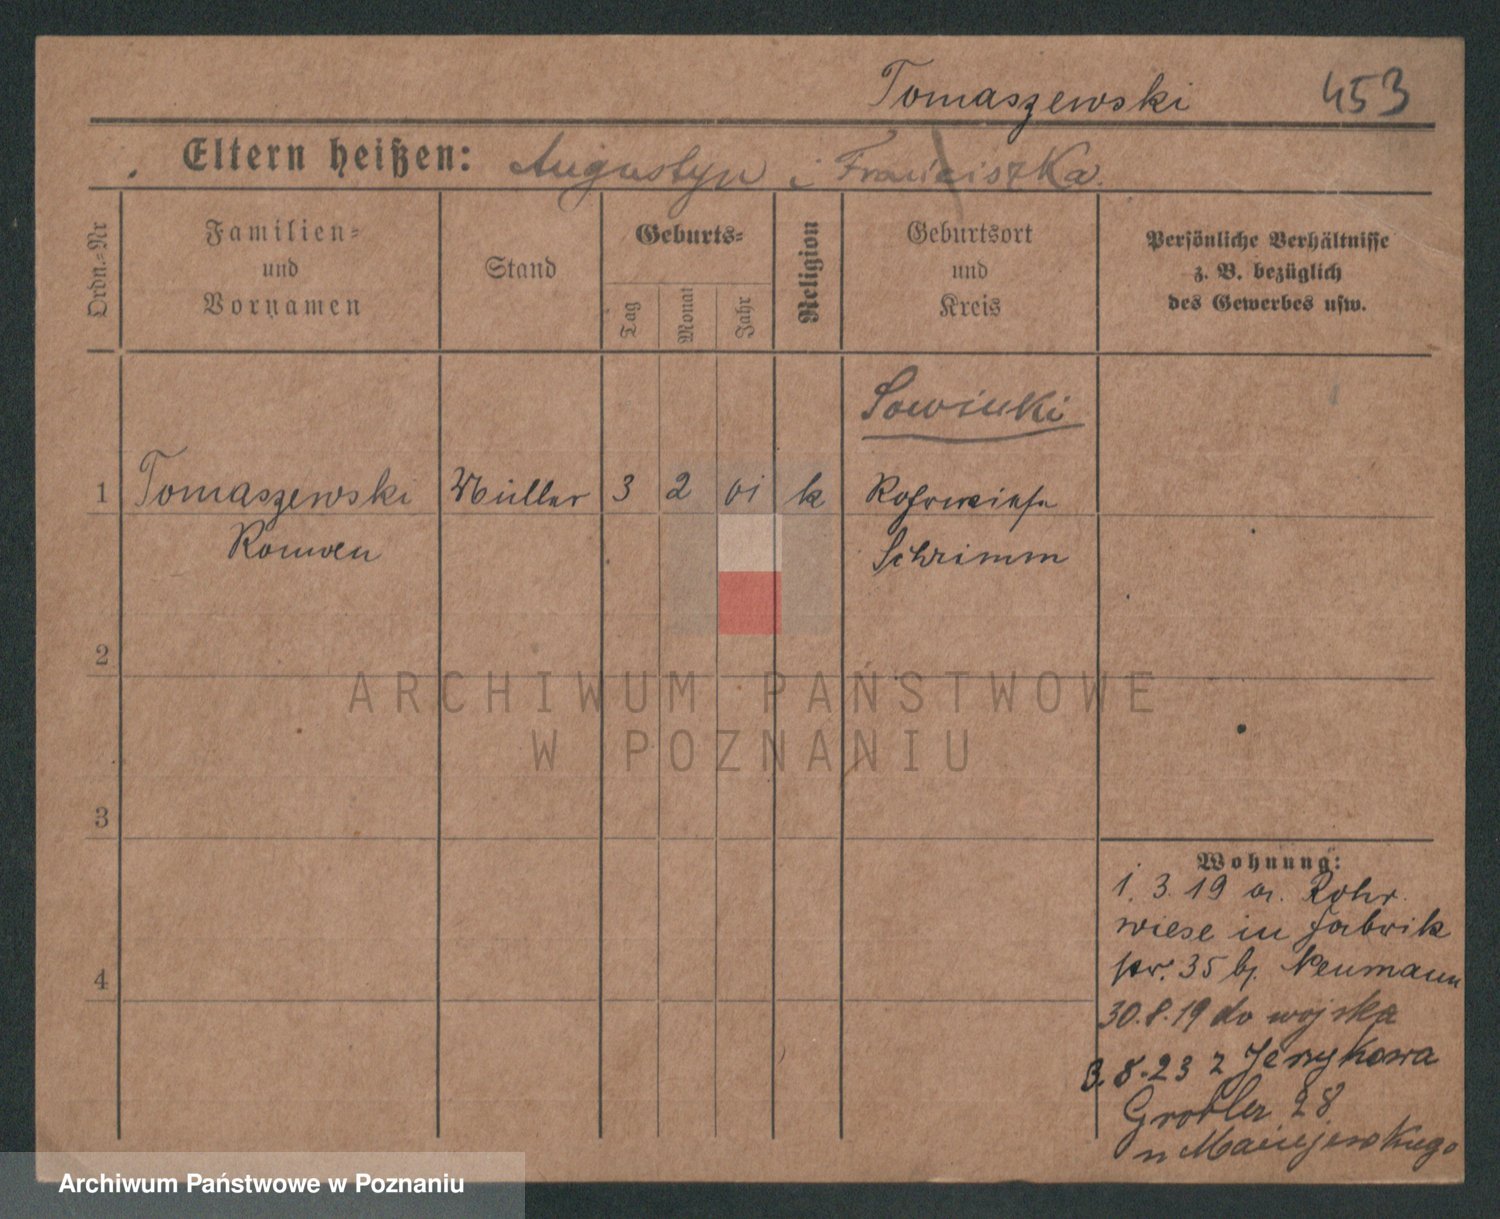 Tomaszewski 453
Eltern heißen: Augustyn i Franciszka.
Ordn.-Nr
Familien-
und
Vornamen
Stand
Geburts-
Tag
Monat
Jahr
Religion
Geburtsort
und
Kreis
Persönliche Verhältnisse
z. B. bezüglich
des Gewerbes usw.
Sowinki
1 Tomaszewski Müller 3 2 01 k Rohrwiese
Roman Schrimm
2
3
4
Wohnung:
1. 3. 19 a. Rohr
wiese in Fabrik
str. 35 bj. Neumann
30.8.19 do wojska
3.8.23 z Jerzykowa
Grobla 28
u Maciejewskiego
ARCHIWUM PAŃSTWOWE
W POZNANIU
Archiwum Państwowe w Poznaniu